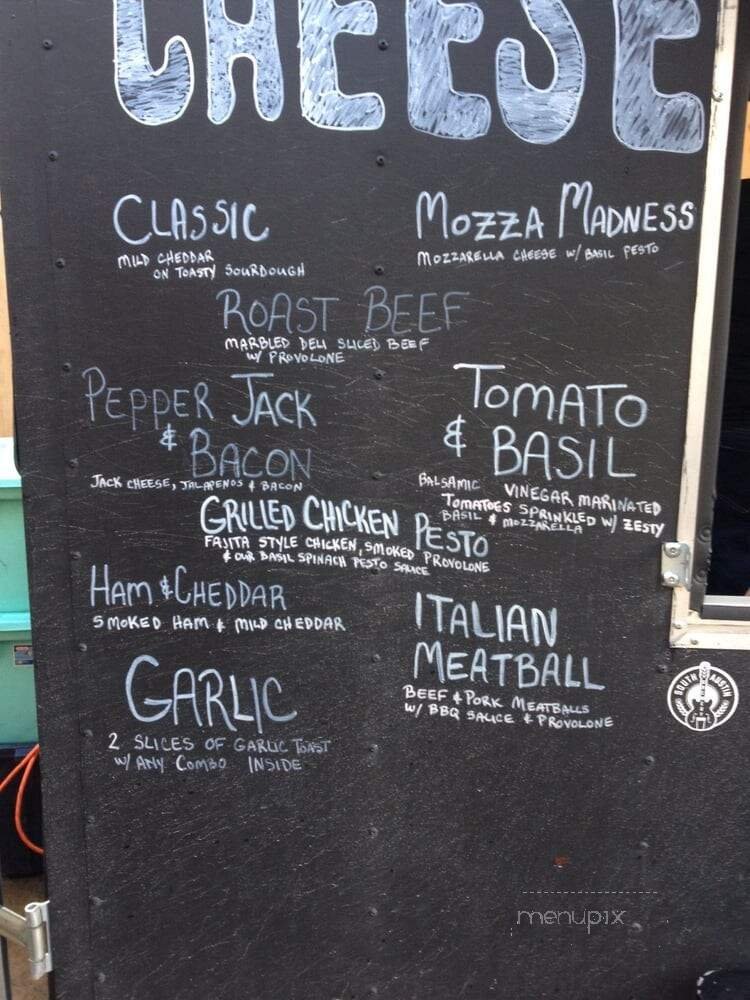 CHEESE
CLASSIC
MILD CHEDDAR
ON TOASTY SOURDOUGH
MOZZA MADNESS
MOZZARELLA CHEESE W/ BASIL PESTO
ROAST BEEF
MARBLED DELI SLICED BEEF
W/ PROVOLONE
PEPPER JACK
& BACON
JACK CHEESE, JALAPENOS & BACON
TOMATO
& BASIL
BALSAMIC VINEGAR MARINATED
TOMATOES SPRINKLED W/ ZESTY
BASIL & MOZZARELLA
GRILLED CHICKEN PESTO
FAJITA STYLE CHICKEN, SMOKED PROVOLONE
& OUR BASIL SPINACH PESTO SAUCE
HAM & CHEDDAR
SMOKED HAM & MILD CHEDDAR
ITALIAN
MEATBALL
BEEF & PORK MEATBALLS
W/ BBQ SAUCE & PROVOLONE
GARLIC
2 SLICES OF GARLIC TOAST
W/ ANY COMBO INSIDE
SOUTH AUSTIN
menupix